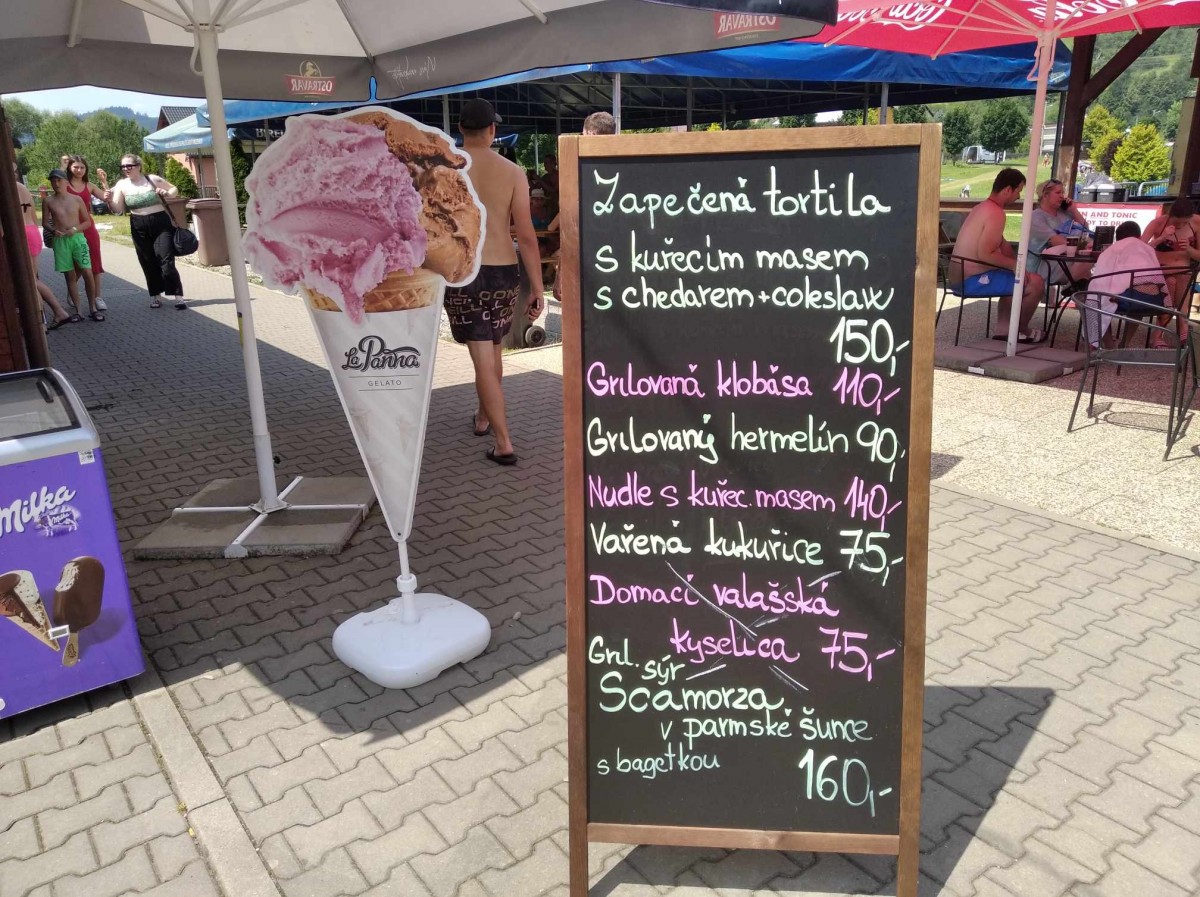 OSTRAVAR
OSTRAVAR
La Panna
GELATO
Milka
Zapečená tortila
s kuřecím masem
s chedarem + coleslaw
150,-
Grilovaná klobása 110,-
Grilovaný hermelín 90,-
Nudle s kuřec. masem 140,-
Vařená kukuřice 75,-
Domací valašská
kyselica 75,-
Gril. sýr
Scamorza
v parmské šunce
s bagetkou 160,-